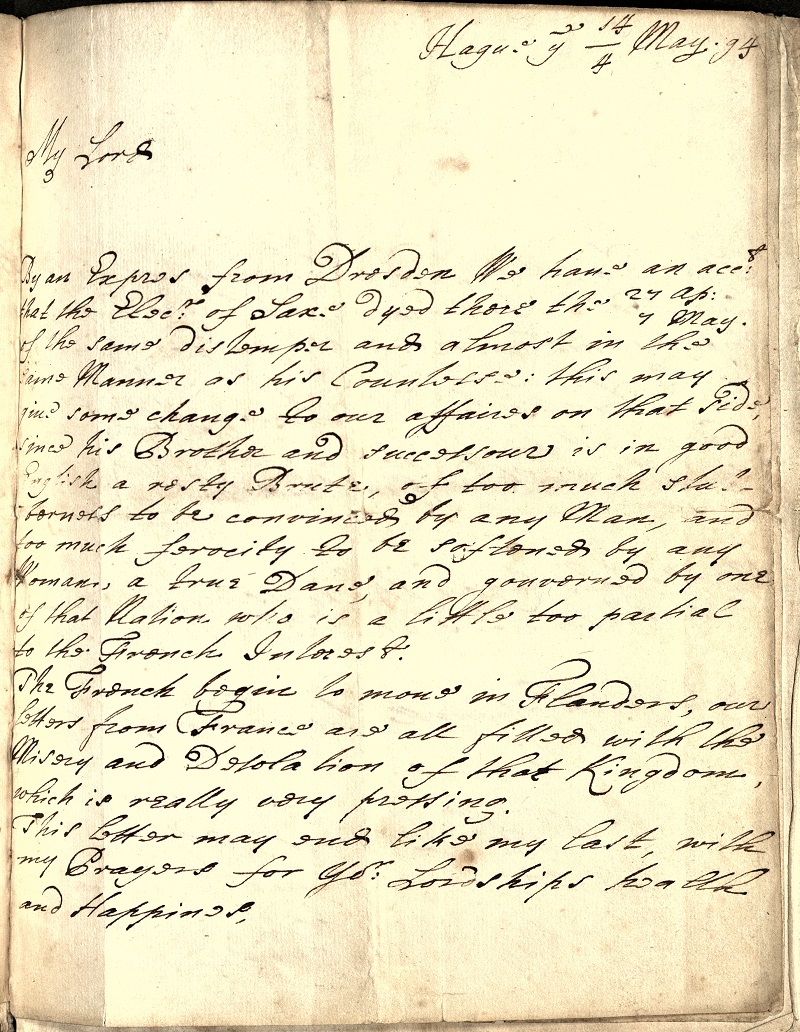 Hague yᵉ 14/4 May. 94
My Lord
By an Expres from Dresden We haue an accᵗ
that the Elecᵗʳ of Saxe dyed there the 27 Ap: / 7 May.
of the same distemper and almost in the
same Manner as his Countesse: this may
giue some change to our affaires on that side,
since his Brother and successour is in good
English a resty Brute, of too much stub-
borness to be convinced by any Man, and
too much ferocity to be softened by any
Woman, a true Dane, and gouverned by one
of that Nation who is a little too partial
to the French Interest.
The French begin to moue in Flanders, our
letters from France are all filled with the
Misery and Desolation of that Kingdom,
which is really very pressing.
This letter may end like my last, with
my Prayers for Yoʳ Lordships health
and Happines,